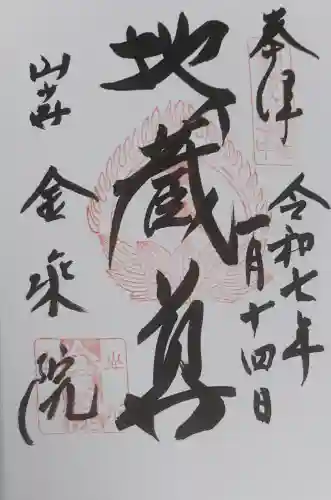 奉拝
令和七年
一月十四日
地蔵尊
金乗院